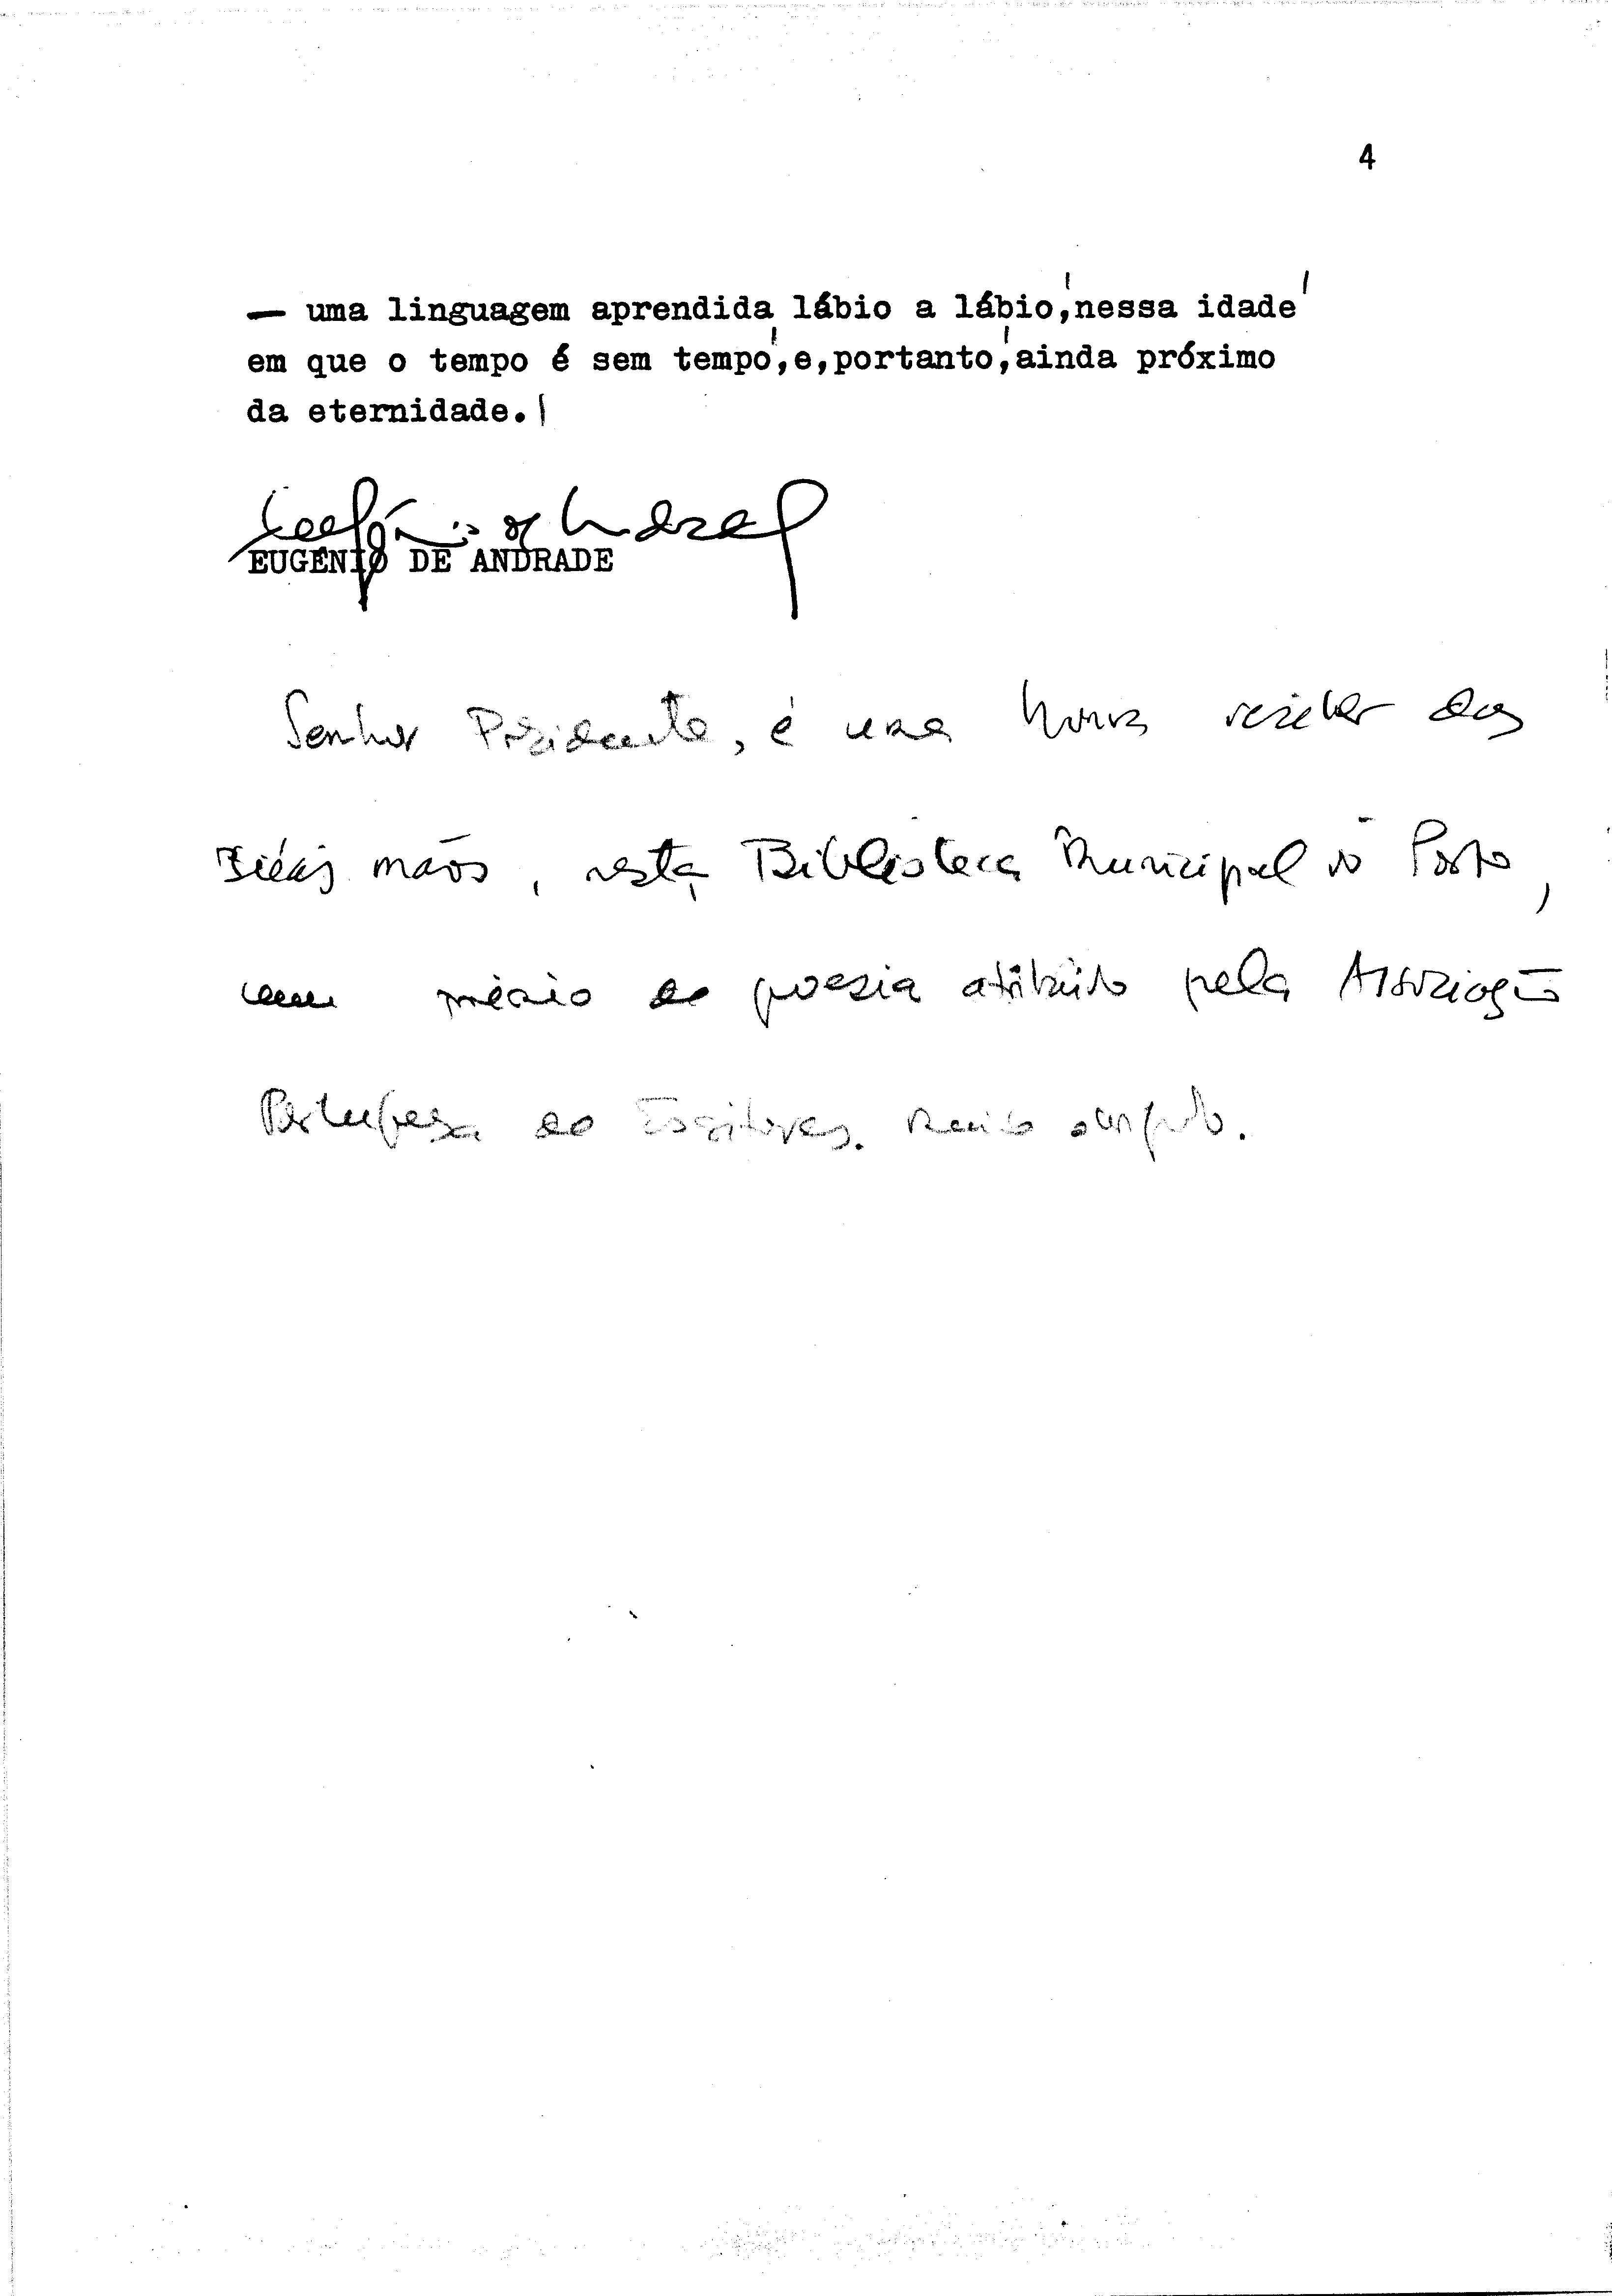 4
— uma linguagem aprendida lábio a lábio, nessa idade
em que o tempo é sem tempo, e, portanto, ainda próximo
da eternidade.
Eugénio de Andrade
EUGÉNIO DE ANDRADE
Senhor Presidente, é uma honra receber das
suas mãos, nesta Biblioteca Municipal do Porto,
um prémio de poesia atribuído pela Associação
Portuguesa de Escritores. Muito obrigado.